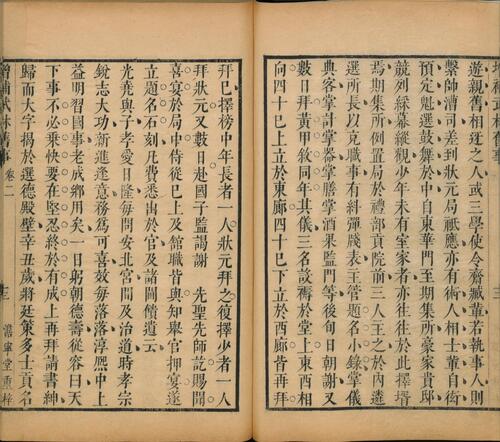 遊親舊相迓之人或三學使令齋臧輩若執事人則
繫帥漕司差到狀元局祗應亦有術人相士輩自衒
預定魁選鼓舞於中自東華門至期集所豪家貴邸
競列綵幕縱觀少年未有室家者亦往往於此擇壻
焉期集所例置局於禮部貢院前三人主之於內遴
選所長以克職事有糾彈牋表主管題名小錄掌儀
典客掌計掌器掌膳掌酒果監門等後旬日朝謝又
數日拜黃甲敘同年其儀三名設褥於堂上東西相
向四十巳上立於東廊四十巳下立於西廊皆再拜
拜巳擇榜中年長者一人狀元拜之復擇少者一人
拜狀元又數日赴國子監謁謝 先聖先師訖賜聞
喜宴於局中侍從巳上及館職皆與知舉官押宴遂
立題名石刻凡費悉出於官及諸閫餽遺云
光堯與子孝愛日隆每問安北宮間及治道時孝宗
銳志大功新進逢意務爲可喜效每落落淳熙中上
益明習國事老成鄉用矣一日躬朝德壽從容曰天
下事不必乘快要在堅忍終於有成上再拜請書紳
歸而大字揭於選德殿壁辛丑歲將廷策多士貢名
增補武林舊事 卷二 三 澹寧堂重梓